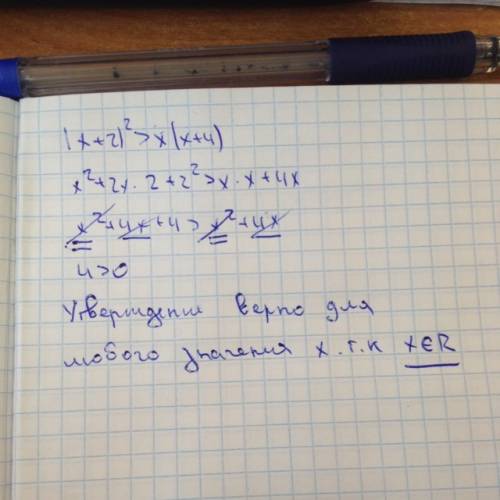 (x+2)²>x(x+4)
x²+2x·2+2²>x·x+4x
x²+4x+4>x²+4x
4>0
Утверждение верно для
любого значения x. т.к x∈R